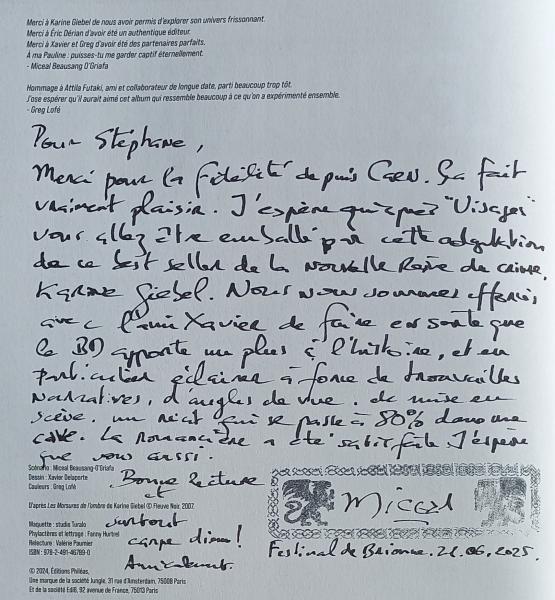 Merci à Karine Giebel de nous avoir permis d'explorer son univers frissonnant.
Merci à Éric Dérian d'avoir été un authentique éditeur.
Merci à Xavier et Greg d'avoir été des partenaires parfaits.
À ma Pauline : puisses-tu me garder captif éternellement.
- Miceal Beausang O'Griafa
Hommage à Attila Futaki, ami et collaborateur de longue date, parti beaucoup trop tôt.
J'ose espérer qu'il aurait aimé cet album qui ressemble beaucoup à ce qu'on a expérimenté ensemble.
- Greg Lofé
Pour Stéphane,
Merci pour la fidélité depuis Caen. Ça fait
vraiment plaisir. J'espère qu'après "Visages"
vous allez être emballé par cette adaptation
de ce best seller de la nouvelle Reine du crime,
Karine Giebel. Nous nous sommes efforcés
avec l'ami Xavier de faire en sorte que
la BD apporte un plus à l'histoire, et en
particulier éclairer à force de trouvailles
narratives, d'angles de vue, de mise en
scène, un récit qui se passe à 80% dans une
cave. La romancière a été satisfaite. J'espère
que vous aussi.
Bonne lecture
et
surtout
carpe diem!
Amicalement.
Miceal
Festival de Brionne. 21.06.2025.
Scénario : Miceal Beausang-O'Griafa
Dessin : Xavier Delaporte
Couleurs : Greg Lofé
D'après Les Morsures de l'ombre de Karine Giebel © Fleuve Noir, 2007.
Maquette : studio Turalo
Phylactères et lettrage : Fanny Hurtrel
Relecture : Valérie Paumier
ISBN : 978-2-491-46789-0
© 2024, Éditions Philéas,
Une marque de la société Jungle, 31 rue d'Amsterdam, 75008 Paris
Et de la société Edi8, 92 avenue de France, 75013 Paris